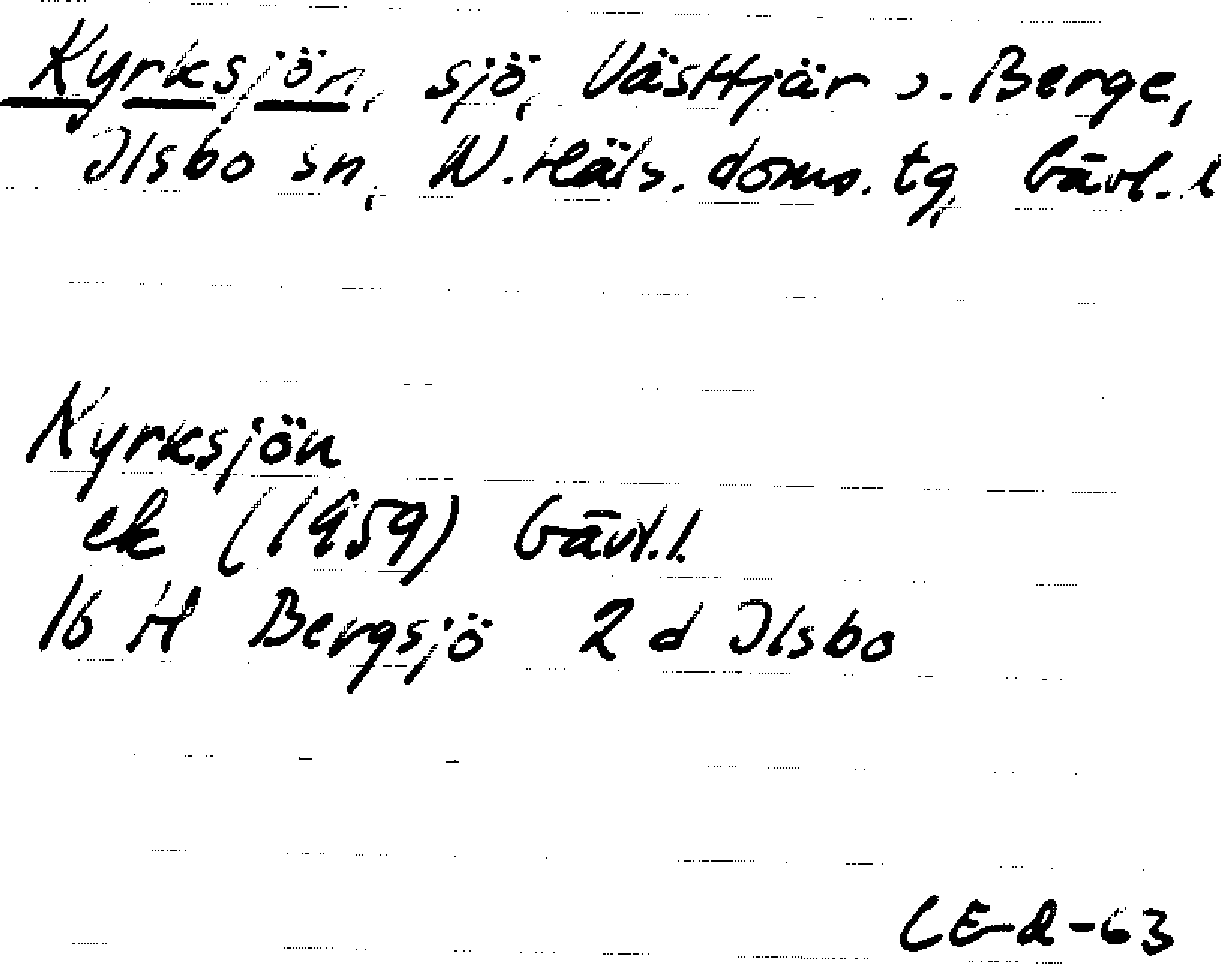 Kyrksjön, sjö, Västtjär o. Berge,
Ilsbo sn, N. Häls. doms. tg, Gävl. l
Kyrksjön
ek (1959) Gävl. l.
16 H Bergsjö 2 d Ilsbo
CE-R-63